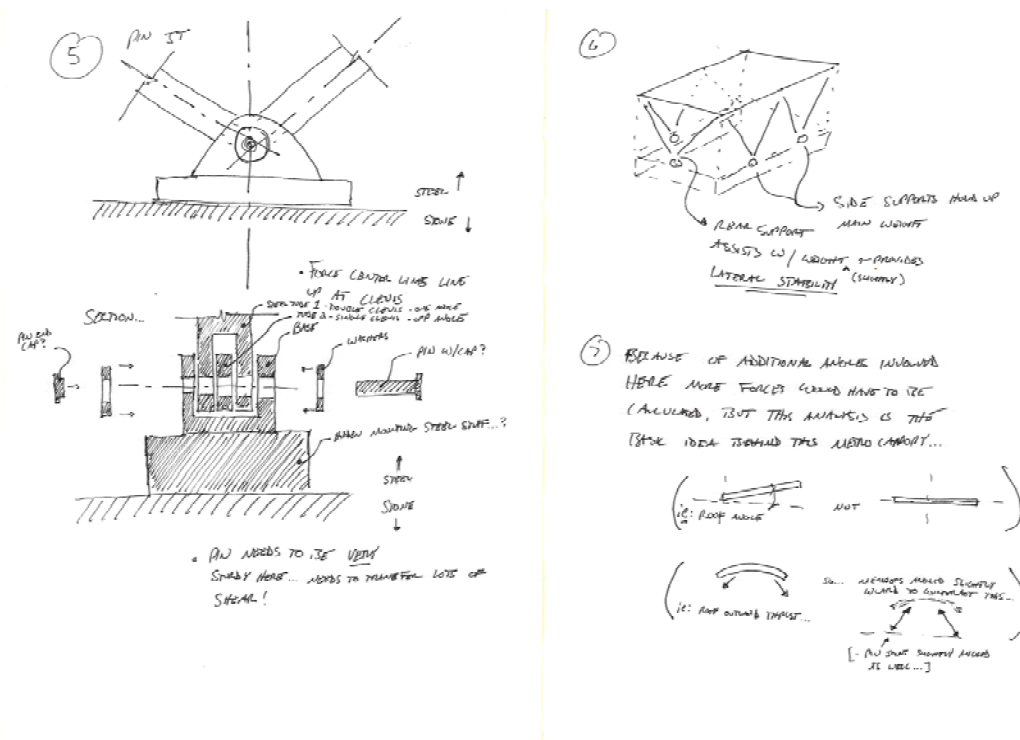 5
PIN JT
STEEL
STONE
• FORCE CENTER LINES LINE
UP AT CLEVIS
SECTION...
SIDE 1 - DOUBLE CLEVIS - ONE ANGLE
SIDE 2 - SINGLE CLEVIS - OPP ANGLE
BASE
WASHERS
PIN END
CAP?
PIN W/CAP?
MOUNTING STEEL STUFF...?
STEEL
STONE
• PIN NEEDS TO BE VERY
STURDY HERE... NEEDS TO TRANSFER LOTS OF
SHEAR!
6
SIDE SUPPORTS HOLD UP
MAIN WEIGHT
REAR SUPPORT
ASSISTS W/ WEIGHT + PROVIDES
(SLIGHTLY)
LATERAL STABILITY
7
BECAUSE OF ADDITIONAL ANGLES INVOLVED
HERE MORE FORCES WOULD HAVE TO BE
CALCULATED, BUT THIS ANALYSIS IS THE
BASIC IDEA BEHIND THIS METRO CANOPY...
(ie: ROOF ANGLE
NOT
)
(ie: ROOF OUTWARD THRUST...
SO... MEMBERS ANGLED SLIGHTLY
INWARD TO COUNTERACT THIS...
)
[- PIN JOINT SLIGHTLY ANGLED
AS WELL...]